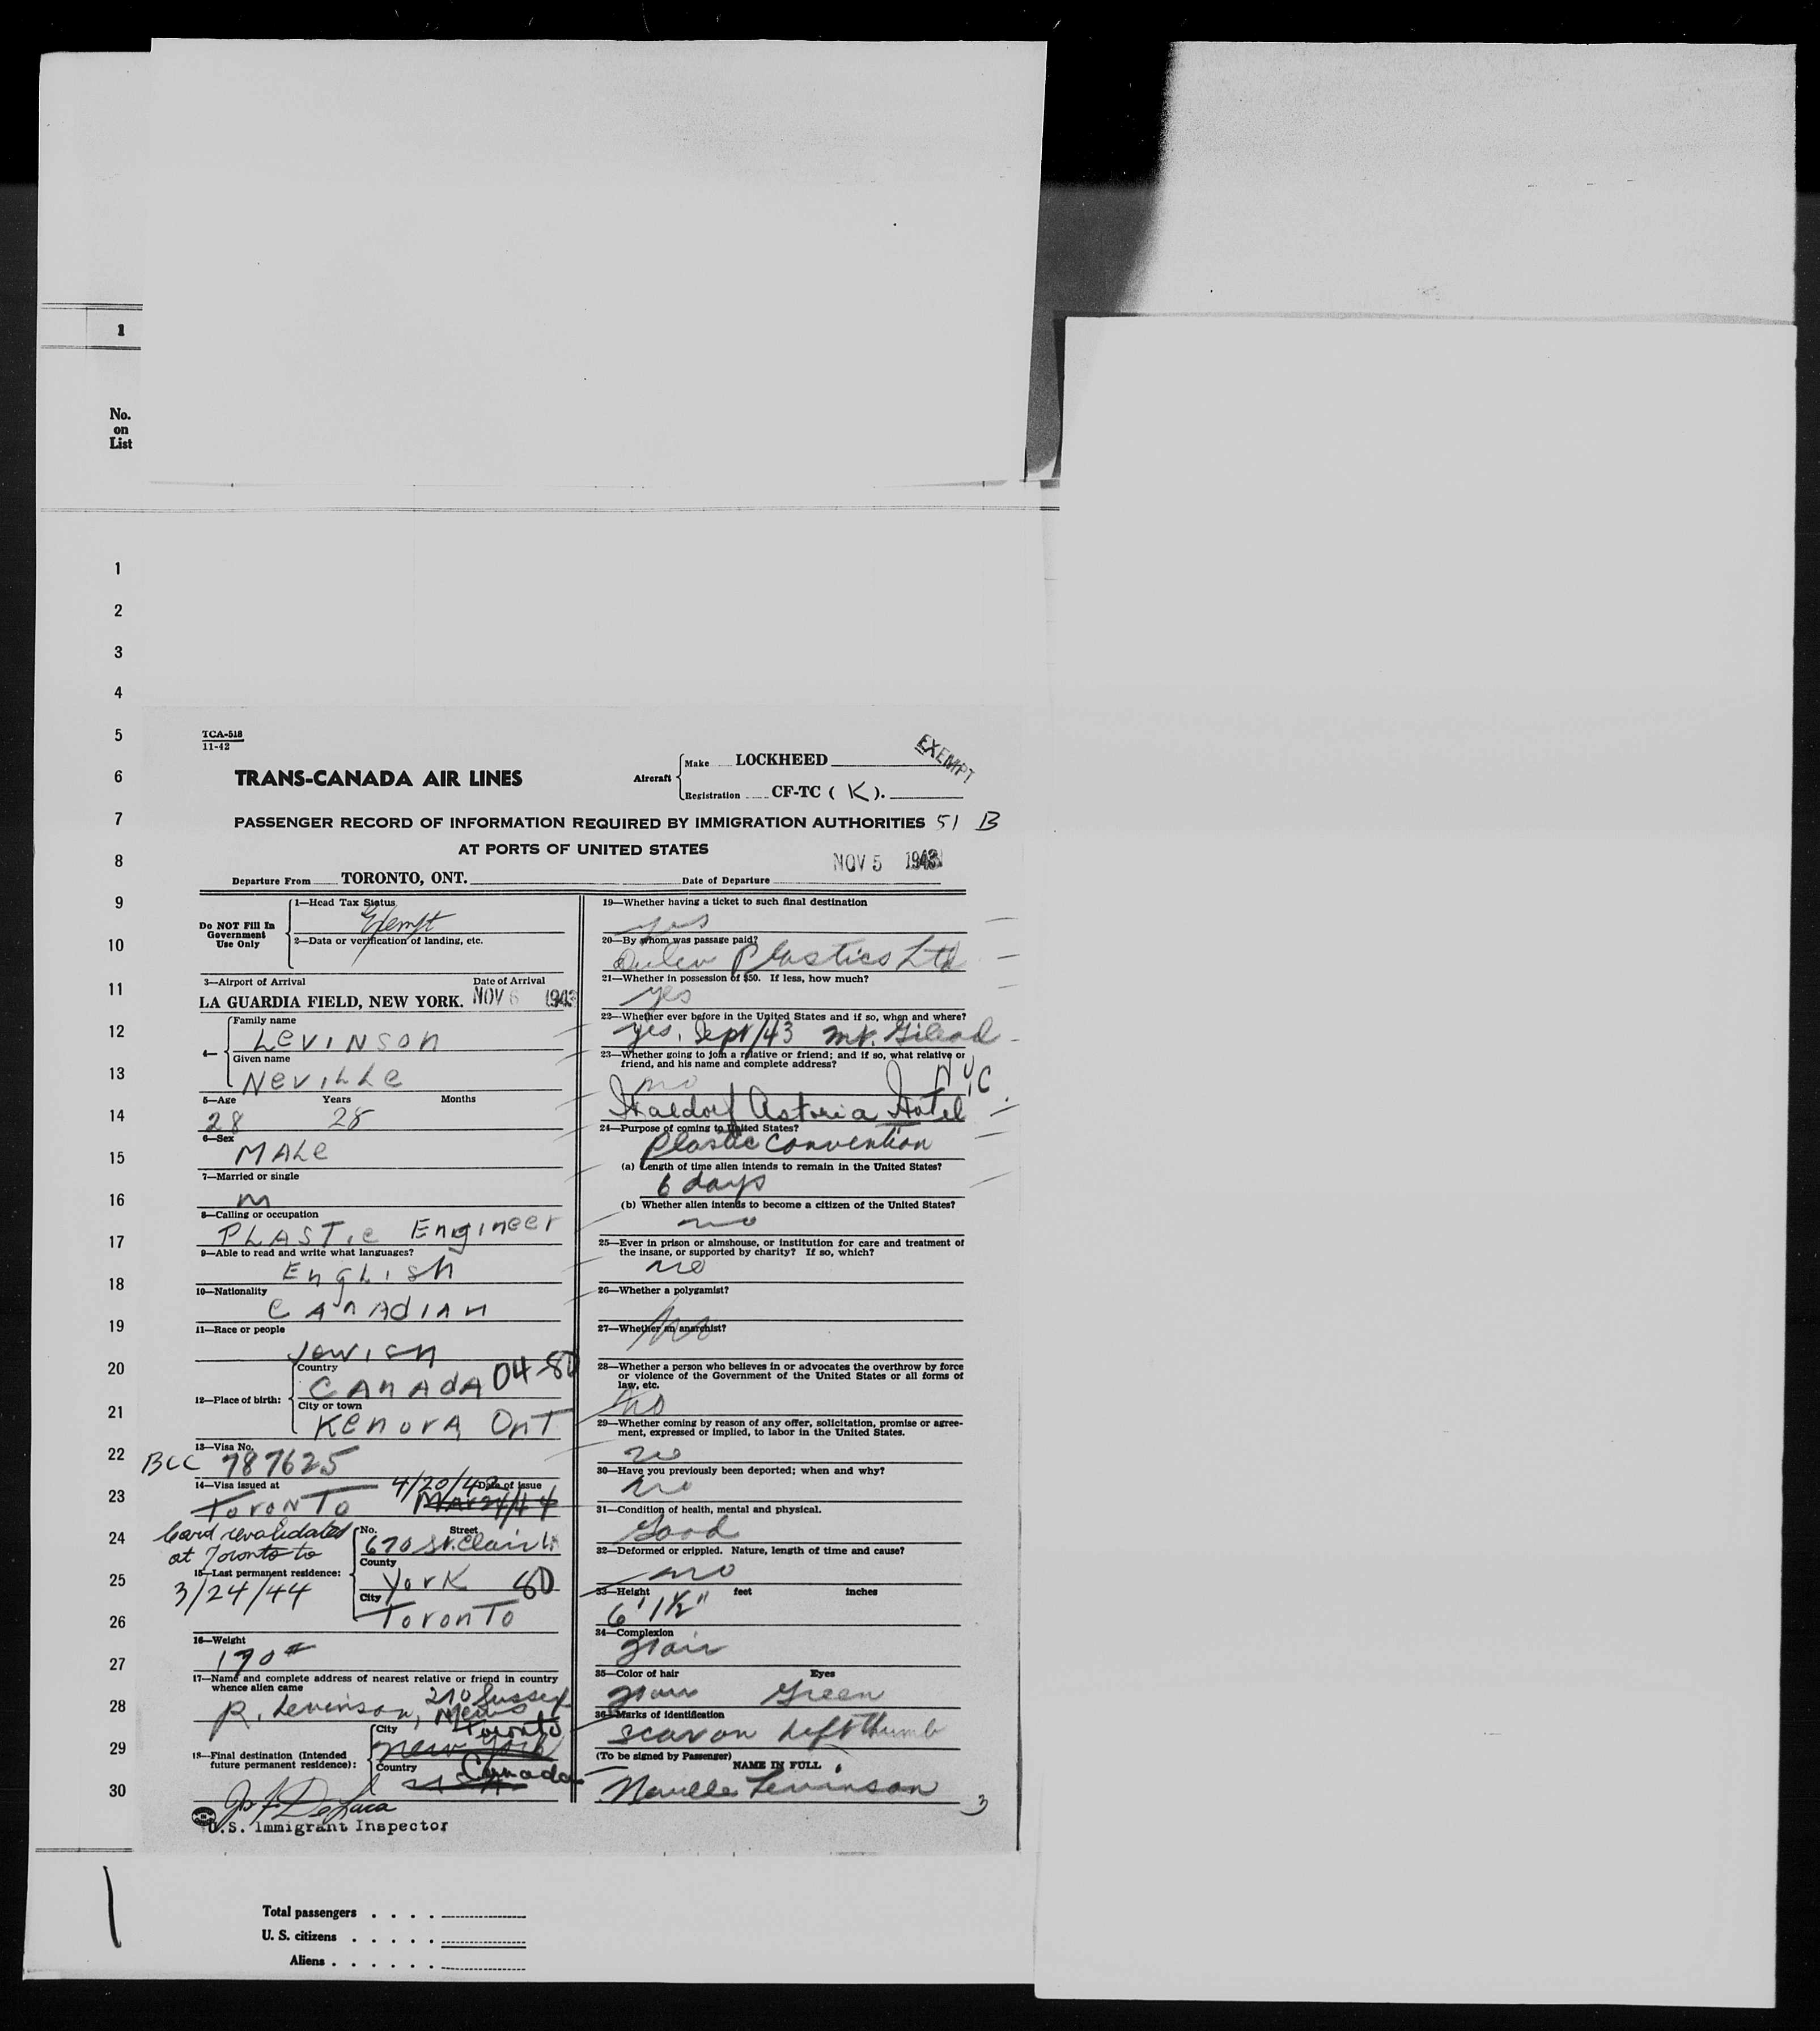 1
No.
on
List
1
2
3
4
5
6
7
8
9
10
11
12
13
14
15
16
17
18
19
20
21
22
23
24
25
26
27
28
29
30
TCA-518
11-42
TRANS-CANADA AIR LINES
Aircraft
Make LOCKHEED
Registration CF-TC ( K ).
EXEMPT
PASSENGER RECORD OF INFORMATION REQUIRED BY IMMIGRATION AUTHORITIES 51 B
AT PORTS OF UNITED STATES
NOV 5 1943
Departure From TORONTO, ONT. Date of Departure
Do NOT Fill In
Government
Use Only
1—Head Tax Status
Exempt
2—Data or verification of landing, etc.
3—Airport of Arrival Date of Arrival
LA GUARDIA FIELD, NEW YORK. NOV 6 1943
4—
Family name
LEVINSON
Given name
NEVILLE
5—Age Years Months
28 28
6—Sex
MALE
7—Married or single
M
8—Calling or occupation
PLASTIC Engineer
9—Able to read and write what languages?
English
10—Nationality
CANADIAN
11—Race or people
Jewish
12—Place of birth:
Country
CANADA 04-80
City or town
Kenora Ont
13—Visa No.
BCC 787625
14—Visa issued at Date of issue
Toronto 4/20/42 Mar 24/44
Card revalidated
at Toronto to
3/24/44
15—Last permanent residence:
No. Street
670 St. Clair W
County
York 80
City
Toronto
16—Weight
170 #
17—Name and complete address of nearest relative or friend in country
whence alien came
R. Levinson, 210 Sussex
Mews
18—Final destination (Intended
future permanent residence):
City Toronto
New York
Country Canada
U.S. Immigrant Inspector
19—Whether having a ticket to such final destination
yes
20—By whom was passage paid?
Plastics Ltd
21—Whether in possession of $50. If less, how much?
yes
22—Whether ever before in the United States and if so, when and where?
yes, Sept/43 Mt. Gilead
23—Whether going to join a relative or friend; and if so, what relative or
friend, and his name and complete address?
no NYC
Waldorf Astoria Hotel
24—Purpose of coming to United States?
Plastic Convention
(a) Length of time alien intends to remain in the United States?
6 days
(b) Whether alien intends to become a citizen of the United States?
no
25—Ever in prison or almshouse, or institution for care and treatment of
the insane, or supported by charity? If so, which?
no
26—Whether a polygamist?
no
27—Whether an anarchist?
28—Whether a person who believes in or advocates the overthrow by force
or violence of the Government of the United States or all forms of
law, etc.
no
29—Whether coming by reason of any offer, solicitation, promise or agree-
ment, expressed or implied, to labor in the United States.
no
30—Have you previously been deported; when and why?
no
31—Condition of health, mental and physical.
Good
32—Deformed or crippled. Nature, length of time and cause?
no
33—Height feet inches
6' 1½"
34—Complexion
Fair
35—Color of hair Eyes
Fair Green
36—Marks of identification
scar on left thumb
(To be signed by Passenger)
NAME IN FULL
Neville Levinson
3
Total passengers
U. S. citizens
Aliens